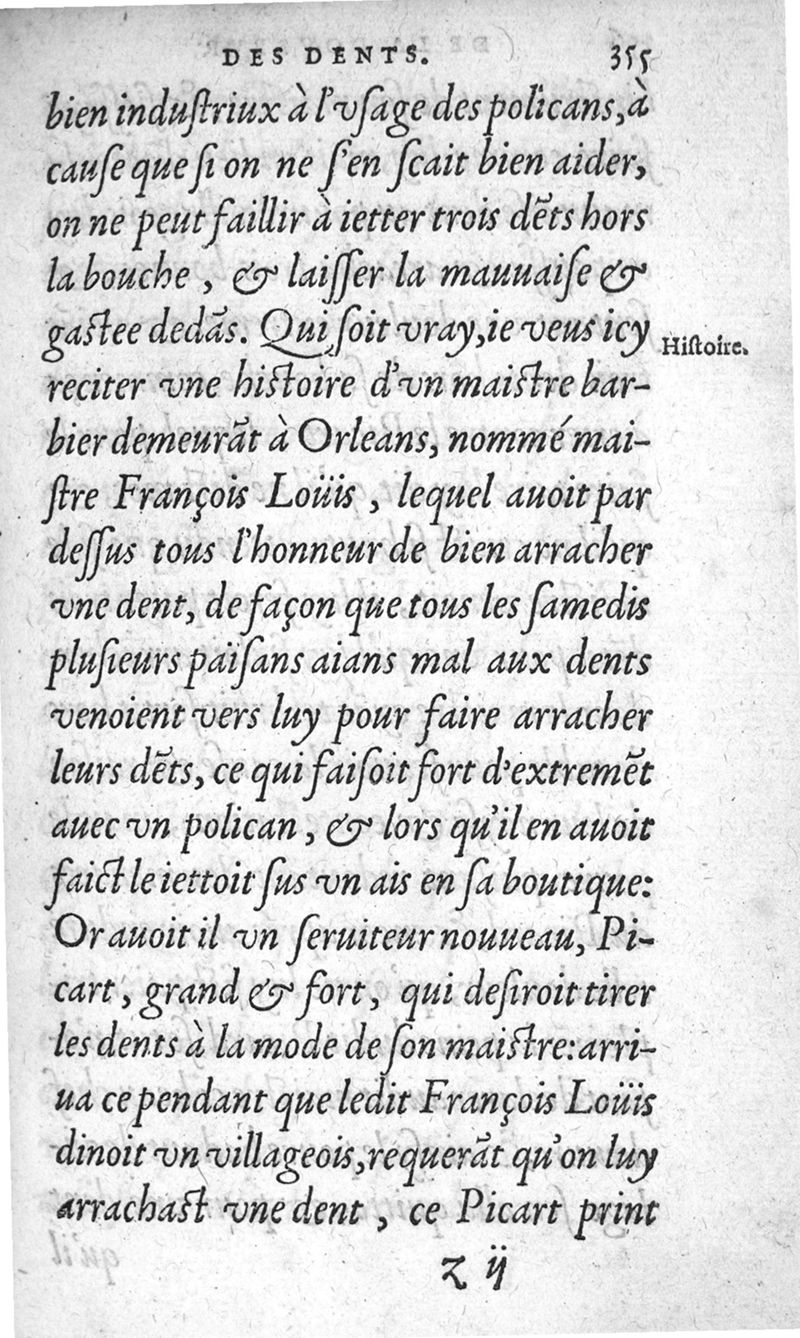 DES DENTS. 355
bien induſtriux à l'vſage des policans, à
cauſe que ſi on ne ſ'en ſcait bien aider,
on ne peut faillir à ietter trois dẽts hors
la bouche , & laiſſer la mauuaiſe &
gaſtee dedãs. Qui ſoit vray, ie veus icy
Hiſtoire.
reciter vne hiſtoire d'vn maiſtre bar-
bier demeurãt à Orleans, nommé mai-
ſtre François Loüis , lequel auoit par
deſſus tous l'honneur de bien arracher
vne dent, de façon que tous les ſamedis
pluſieurs païſans aians mal aux dents
venoient vers luy pour faire arracher
leurs dẽts, ce qui faiſoit fort d'extremẽt
auec vn polican , & lors qu'il en auoit
faict le iettoit ſus vn ais en ſa boutique:
Or auoit il vn ſeruiteur nouueau, Pi-
cart , grand & fort , qui deſiroit tirer
les dents à la mode de ſon maiſtre: arri-
ua cependant que ledit François Loüis
dinoit vn villageois, requerãt qu'on luy
arrachaſt vne dent , ce Picart print
z ij